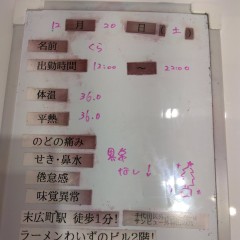 12月20日(土)
名前 くら
出勤時間 13:00 〜 22:00
体温 36.0
平熱 36.0
のどの痛み
せき・鼻水
倦怠感
味覚異常
異常なし!
末広町駅 徒歩1分!
ラーメンわいずのビル2階!